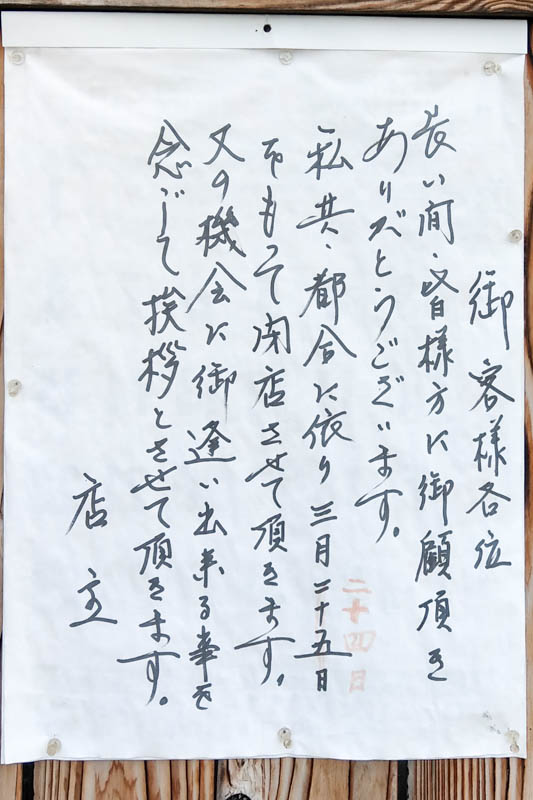 御客様各位
長い間、皆様方に御顧頂き
ありがとうございます。
私共、都合に依り三月二十五日
二十四日
をもって閉店させて頂きます。
又の機会に御逢い出来る事を
念じて挨拶とさせて頂きます。
店主